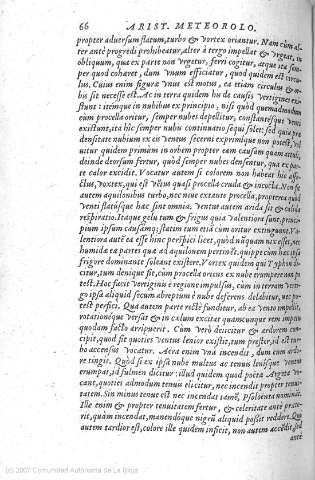 66 ARIST. METEOROLO.
propter aduersum flatum, turbo & vortex oriantur. Nam cùm al-
ter antè progredi prohibeatur, alter à tergo impellat & vrgeat, in
obliquum, qua ex parte non vrgetur, ferri cogitur, atque ita sem-
per quod cohæret, dum vnum efficiatur, quod quidem est circu-
lus. Cuius enim figuræ vnus est motus, ea etiam circulus &
bis sit necesse est. Ac in terra quidem hu de causis vertigines ex-
stunt: itémque in nubibus ex principio, nisi quòd quemadmodum
cùm procella oritur, semper nubes depellitur, constantésque venti
existunt, ita hic semper nubis continuatio sequi solet: sed quia præ
densitate nubium ex eis ventus secerni exprimíque non potest, vol
uitur quidem primùm in orbem propter eam causam quam attuli,
deinde deorsum fertur, quòd semper nubes densentur, qua ex par-
te calor excidit. Vocatur autem si colorem non habeat hic affl-
ctus, vortex, qui est velut quasi procella cruda & incocta. Non fit
autem aquilonibus turbo, nec niue exstante procella, propterea quòd
venti flatúsque hæc sint omnia. Ventus autem arida, & calida
respiratio. Itaque gelu tum & frigus quia valentiora sunt, princi-
pium ipsum causámque statim tum etiā cùm oritur exting uunt. Va-
lentiora autē ea esse hinc perspici licet, quòd nūquam nix esset, nec
humida ea partes quæ ad aquilonem pertinēt: quippe cùm hæc ipsa
frigore dominante soleant existere. Vortex quidem qui Typhon di-
citur, tum denique fit, cùm procella oritur ex nube erumpere non po
test. Hoc facit vertiginis è regione impulsus, cùm in terram verti-
go ipsa aliquid secum abreptum è nube deferens delabitur, nec po-
test perfici. Qua autem parte rectè funditur, ab ea vento impellit,
rotationéque versat & in calum excitat quamcunque rem impetu
quodam facto arripuerit. Cùm verò deiicitur & ardorem con-
cipit, quod fit quoties ventus lenior existit, tum prester, id est tur-
bo accensus vocatur. Aëra enim vnà incendit, dum eum ardo-
re tingit. Quòd si ex ipsa nube multus ac tenuis leuísque ventus
erumpat, id fulmen dicitur: illud quidem quod poëtæ Argeta vo-
cant, quoties admodum tenuis elicitur, nec incendit propter tenui-
tatem. Sin minus tenuis est nec incendat tamē, Psoloenta nominant.
Ille enim & propter tenuitatem fertur, & celeritate antè præte-
rit, quàm incendat, manendóque nigrū aliquid possit reddere. Qui
autem tardior est, colore ille quidem inficit, non autem accēdit, sed
antè
(c) 2007 Comunidad Autonoma de La Rioja